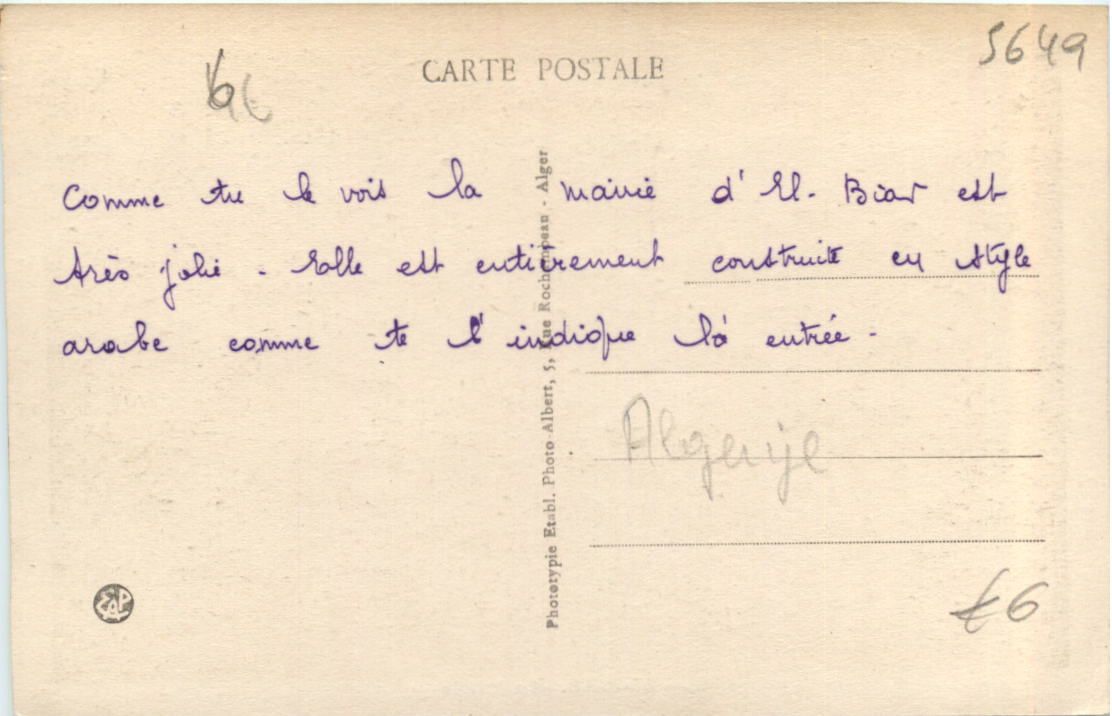 5649
CARTE POSTALE
Comme tu le vois la mairie d'El-Biar est
très jolie - Elle est entièrement construite en style
arabe comme te l'indique la entrée -
Phototypie Etabl. Photo-Albert, 5, Rue Rochampeau - Alger
Algerije
€6